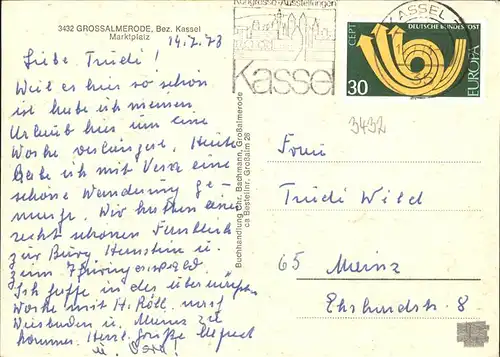 3432 GROSSALMERODE, Bez. Kassel
Marktplatz
14.7.73
Kongresse-Ausstellungen
Kassel
KASSEL
CEPT
DEUTSCHE BUNDESPOST
EUROPA
30
3432
Liebe Trudi!
Weil es hier so schön
ist habe ich meinen
Urlaub hier um eine
Woche verlängert. Heute
habe ich mit Vera eine
schöne Wanderung ge-
macht. Wir hatten einen
recht schönen Fernblick
zur Burg Hanstein u.
zum Thüringerwald.
Ich hoffe in der übernächsten
Woche mit H. Röll nach
Wiesbaden u. Mainz zu
kommen. Herzl. Grüße
u. Vera!
Buchhandlung Chr. Bachmann, Großalmerode
ca Bestellnr. Großalm 28
Frau
Trudi Wild
65 Mainz
8